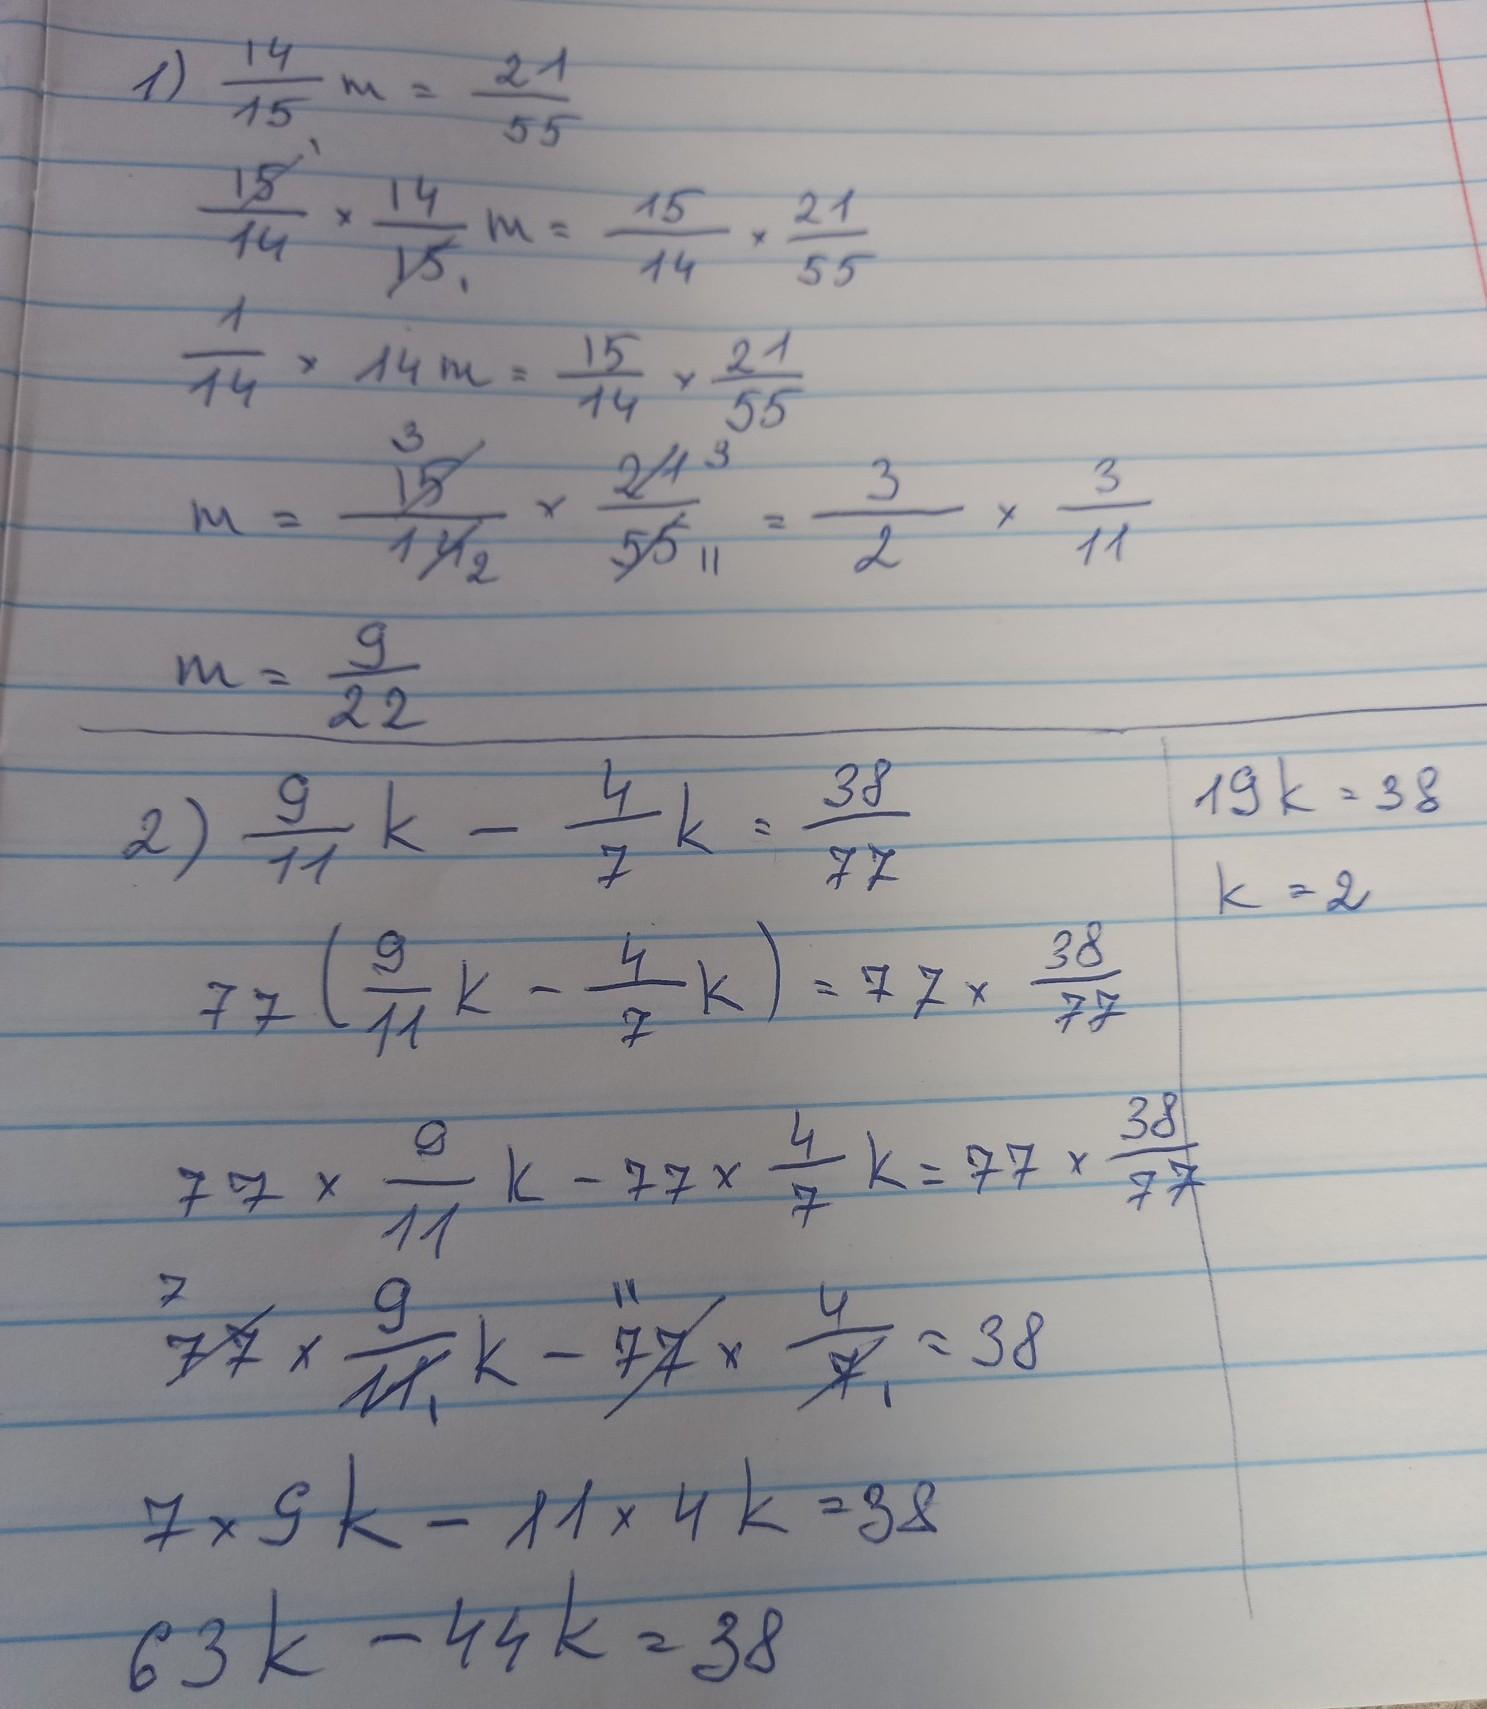 1) 14/15 m = 21/55
15/14 × 14/15 m = 15/14 × 21/55
1/14 × 14m = 15/14 × 21/55
m = 15/14 × 21/55 = 3/2 × 3/11
m = 9/22
2) 9/11 k - 4/7 k = 38/77
77 (9/11 k - 4/7 k) = 77 × 38/77
77 × 9/11 k - 77 × 4/7 k = 77 × 38/77
77 × 9/11 k - 77 × 4/7 = 38
7 × 9k - 11 × 4k = 38
63k - 44k = 38
19k = 38
k = 2